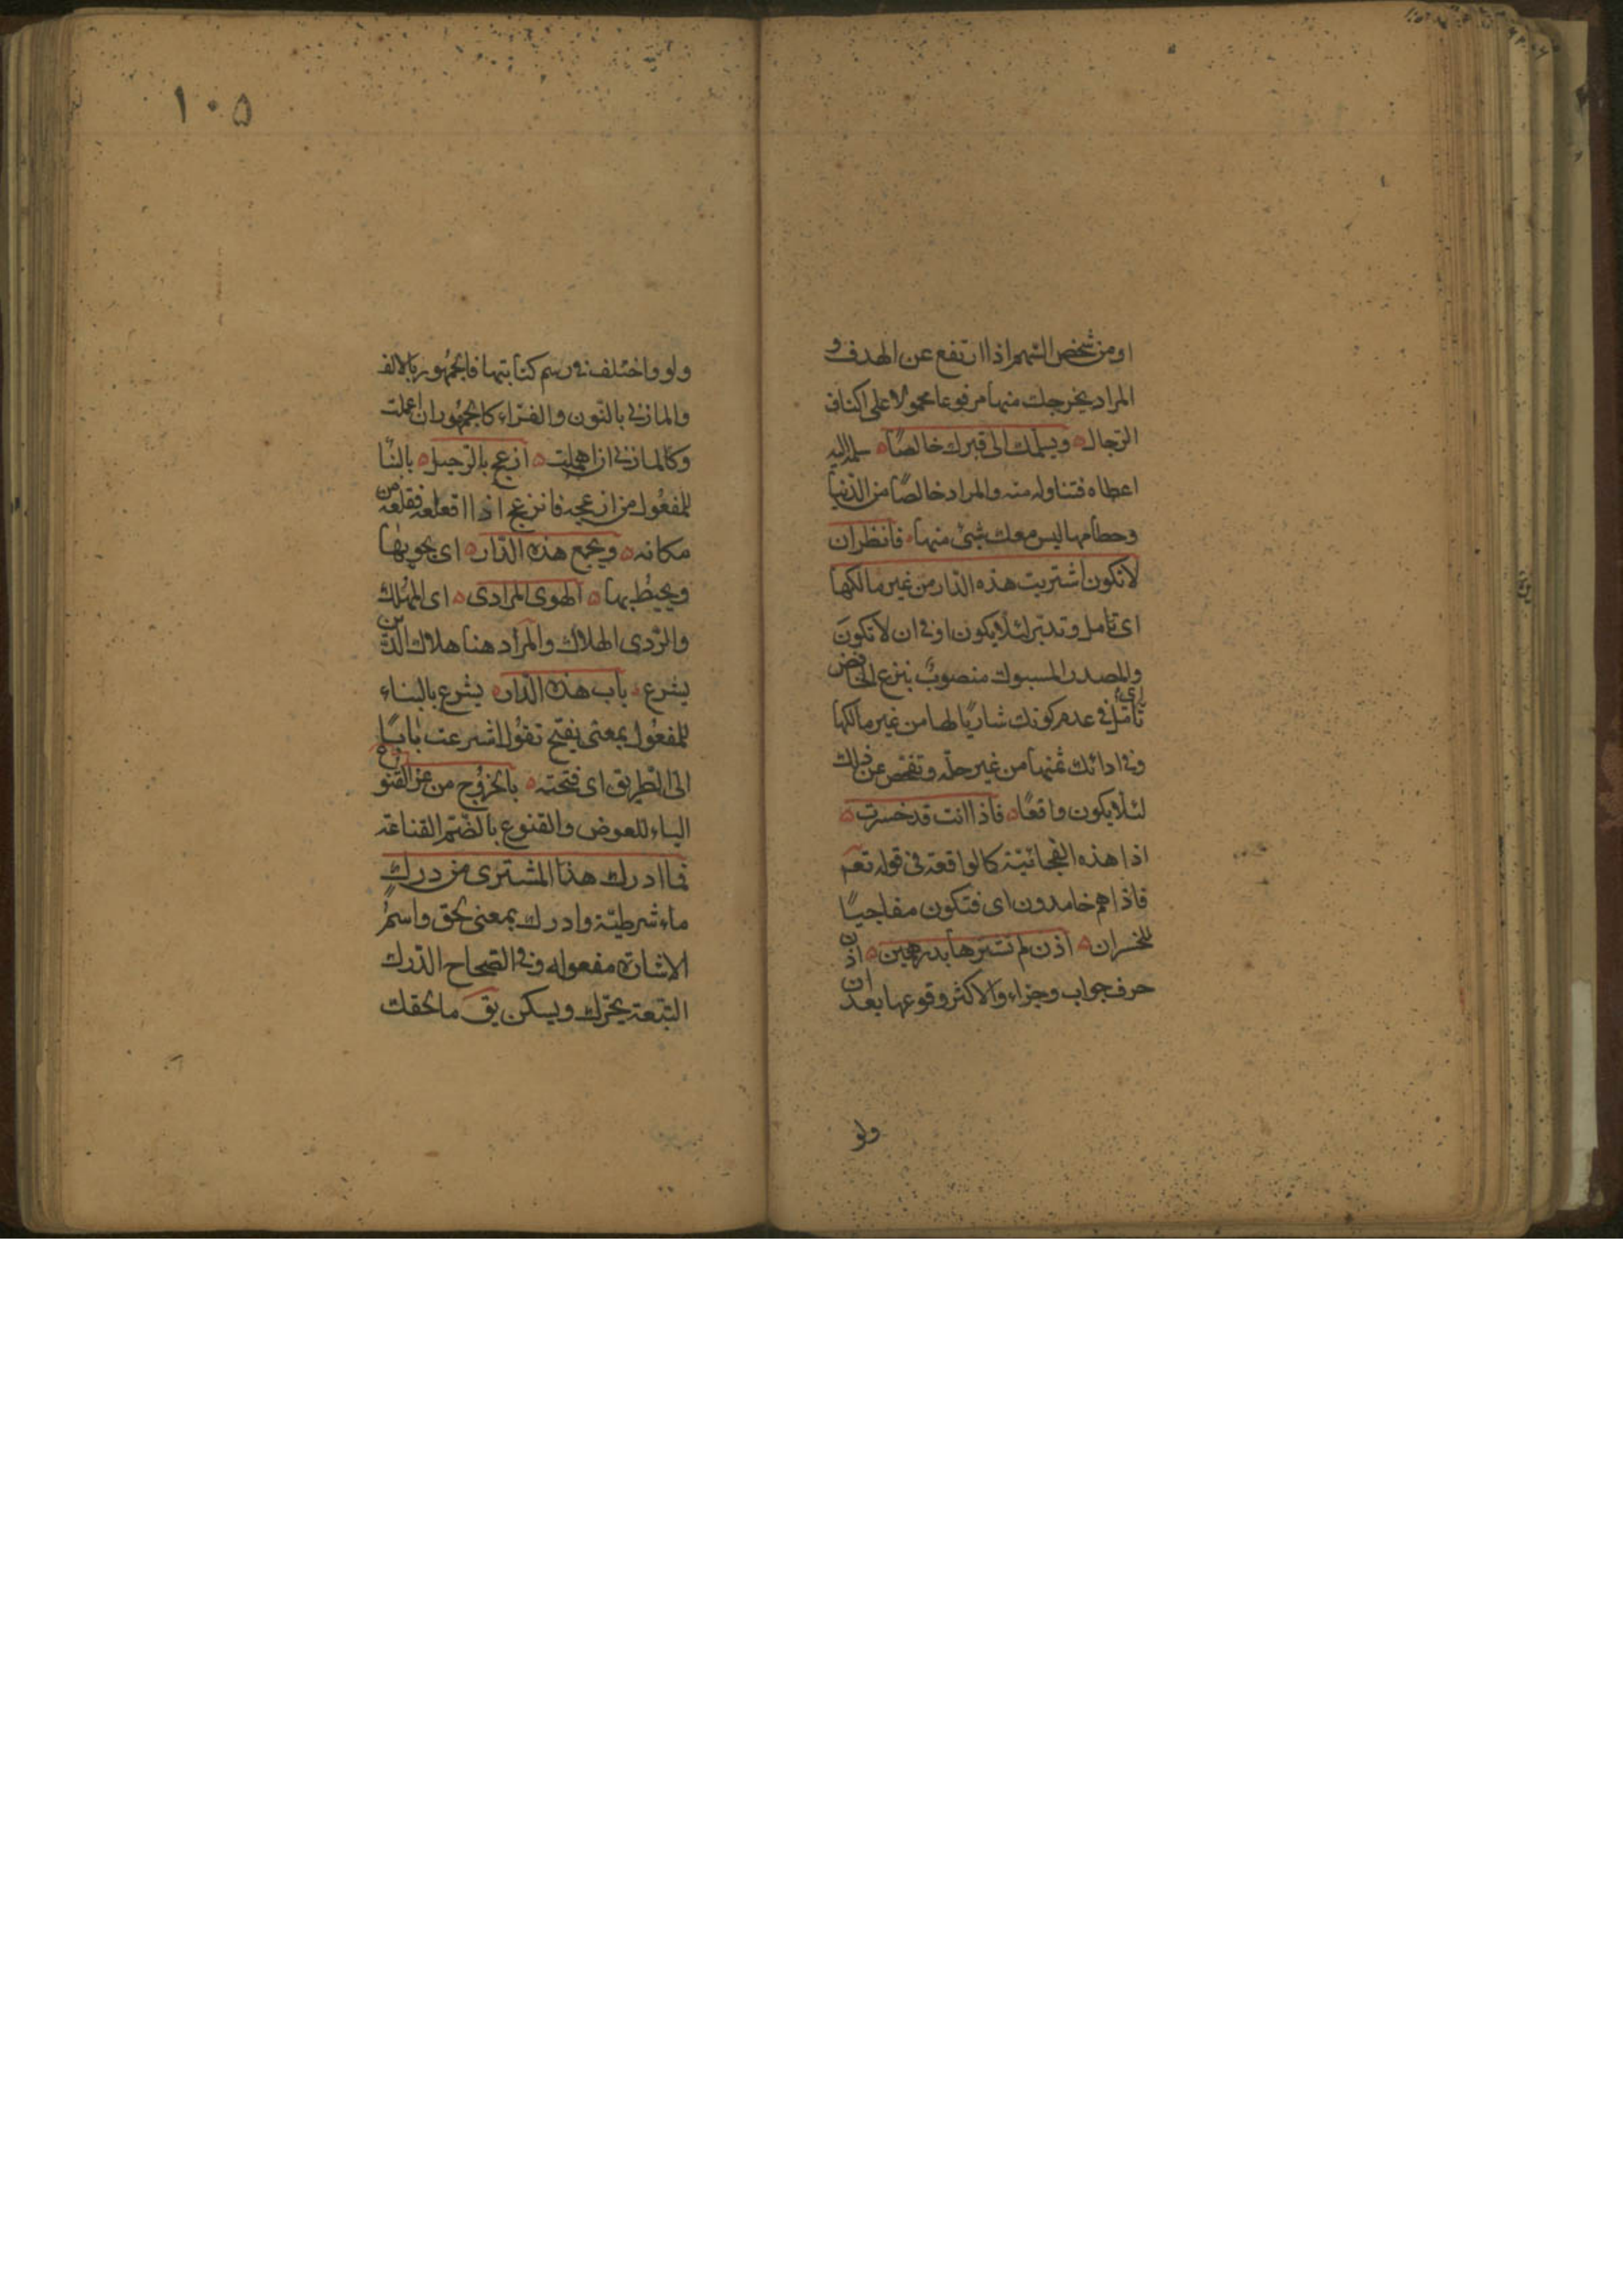 او من شخص السهم اذا ارتفع عن الهدف و
المراد يخرجك منها مرفوعا محمولا على اكتاف
الرجال ويسلمك الى قبرك خالصًا سلمه اليه
اعطاه فتناوله منه والمراد خالصًا من الدنيا
وحطامها ليس معك شئ منها فانظر ان
لا تكون اشتريت هذه الدار من غير مالكها
اى تامل وتدبر لئلا يكون او فى ان لا تكون
والمصدر المسبوك منصوب بنزع الخافض اى
تامل فى عدم كونك شاريًا لها من غير مالكها
وفى ادائك ثمنها من غير حله وتفحص عن ذلك
لئلا يكون واقعًا فاذا انت قد خسرت
اذا هذه الفجائية كالواقعة فى قوله تعم
فاذا هم خامدون اى فتكون مفاجيًا
للخسران اذن لم تشترها بدرهمين اذن
حرف جواب وجزاء والاكثر وقوعها بعد ان
ولو
١٠٥
ولو واختلف فى رسم كتابتها فالجمهور بالالف
والمازنى بالنون والفراء كالجمهور ان اعملت
وكالمازنى ان اهملت ازعج بالرحيل بالبنا
للمفعول من ازعجه فانزعج اذا اقعلعه فقلعه من
مكانه ويجمع هذه الدار اى يحويها
ويحيط بها الهوى المرادى اى المهلك
والردى الهلاك والمراد هنا هلاك الدين
يشرع باب هذه الدار يشرع بالبناء
للمفعول بمعنى يفتح تقول اشرعت بابًا
الى الطريق اى فتحته بالخروج من عز القنوع
الباء للعوض والقنوع بالضم القناعة
فما ادرك هذا المشترى من درك
ماء شرطية وادرك بمعنى لحق واسم
الاشارة مفعوله وفى الصحاح الدرك
التبعة يحرك ويسكن يق ما لحقك